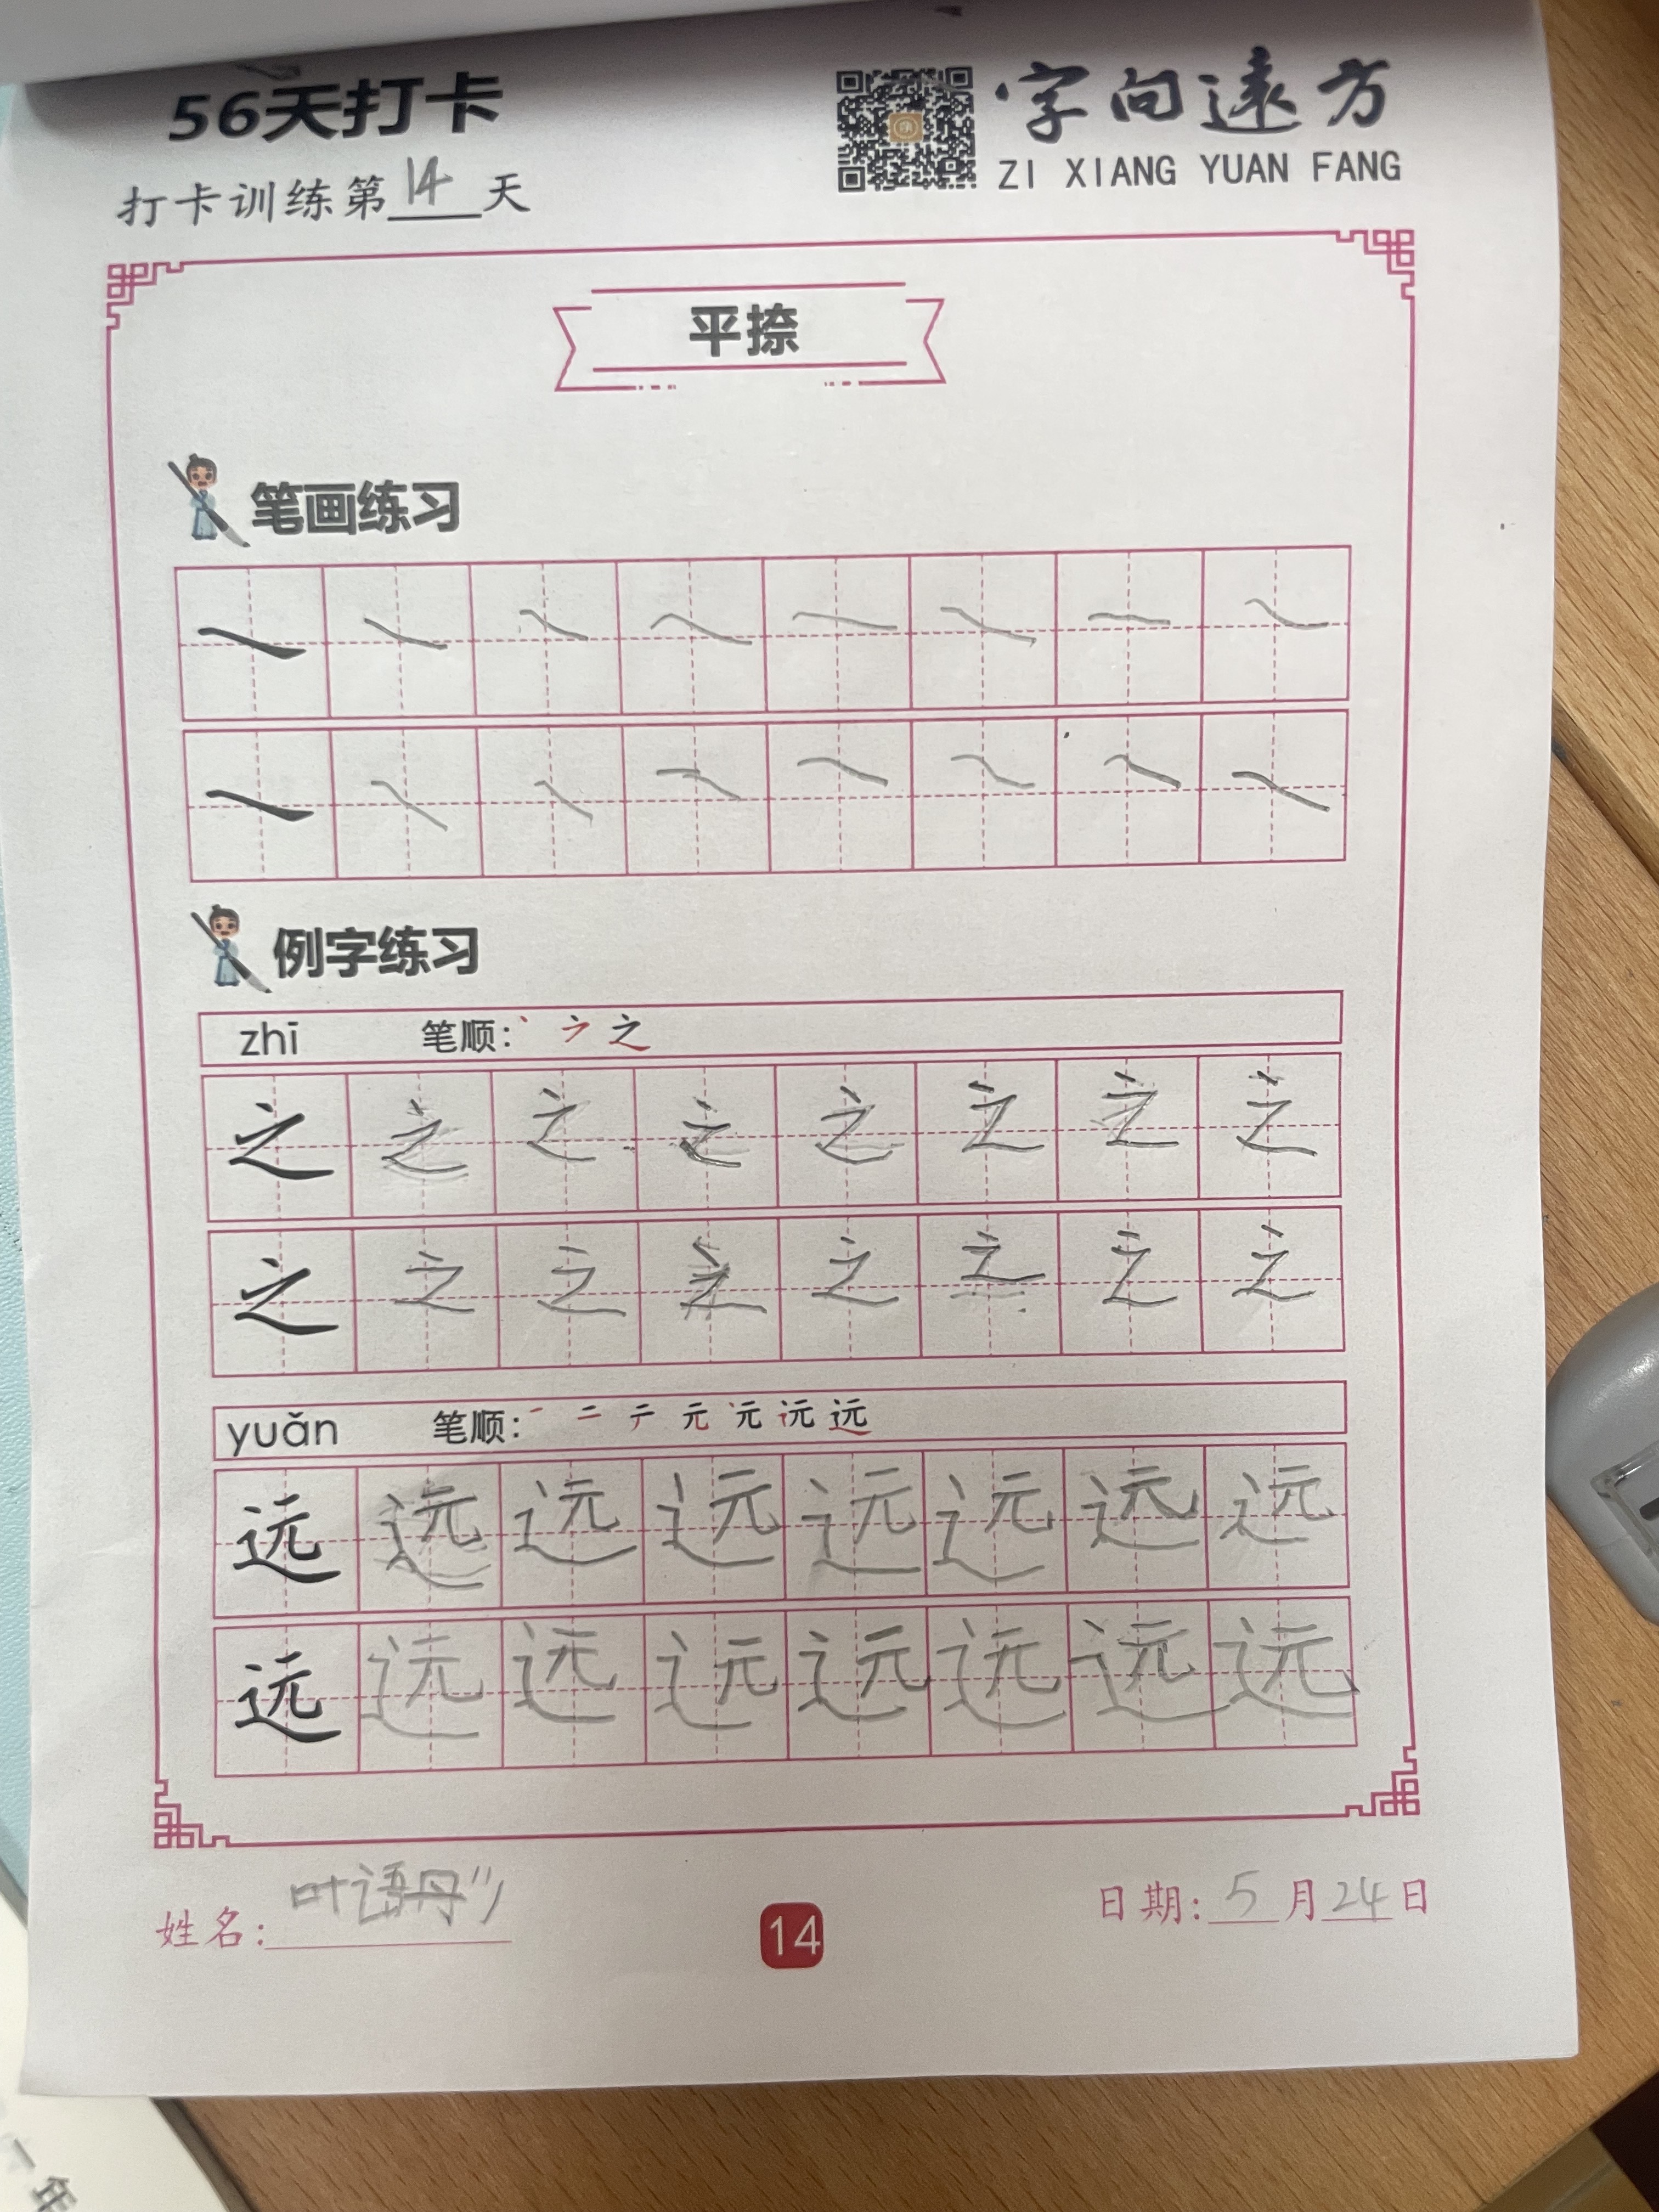 56天打卡
字向遠方
ZI XIANG YUAN FANG
打卡训练第14天
平捺
笔画练习
例字练习
zhī 笔顺: 丶 之
之 之 之 之 之 之 之 之
之 之 之 之 之 之 之 之
yuǎn 笔顺: 一 二 テ 元 远
远 远 远 远 远 远 远 远
远 远 远 远 远 远 远 远
姓名: 叶语丹
14
日期: 5月24日
年